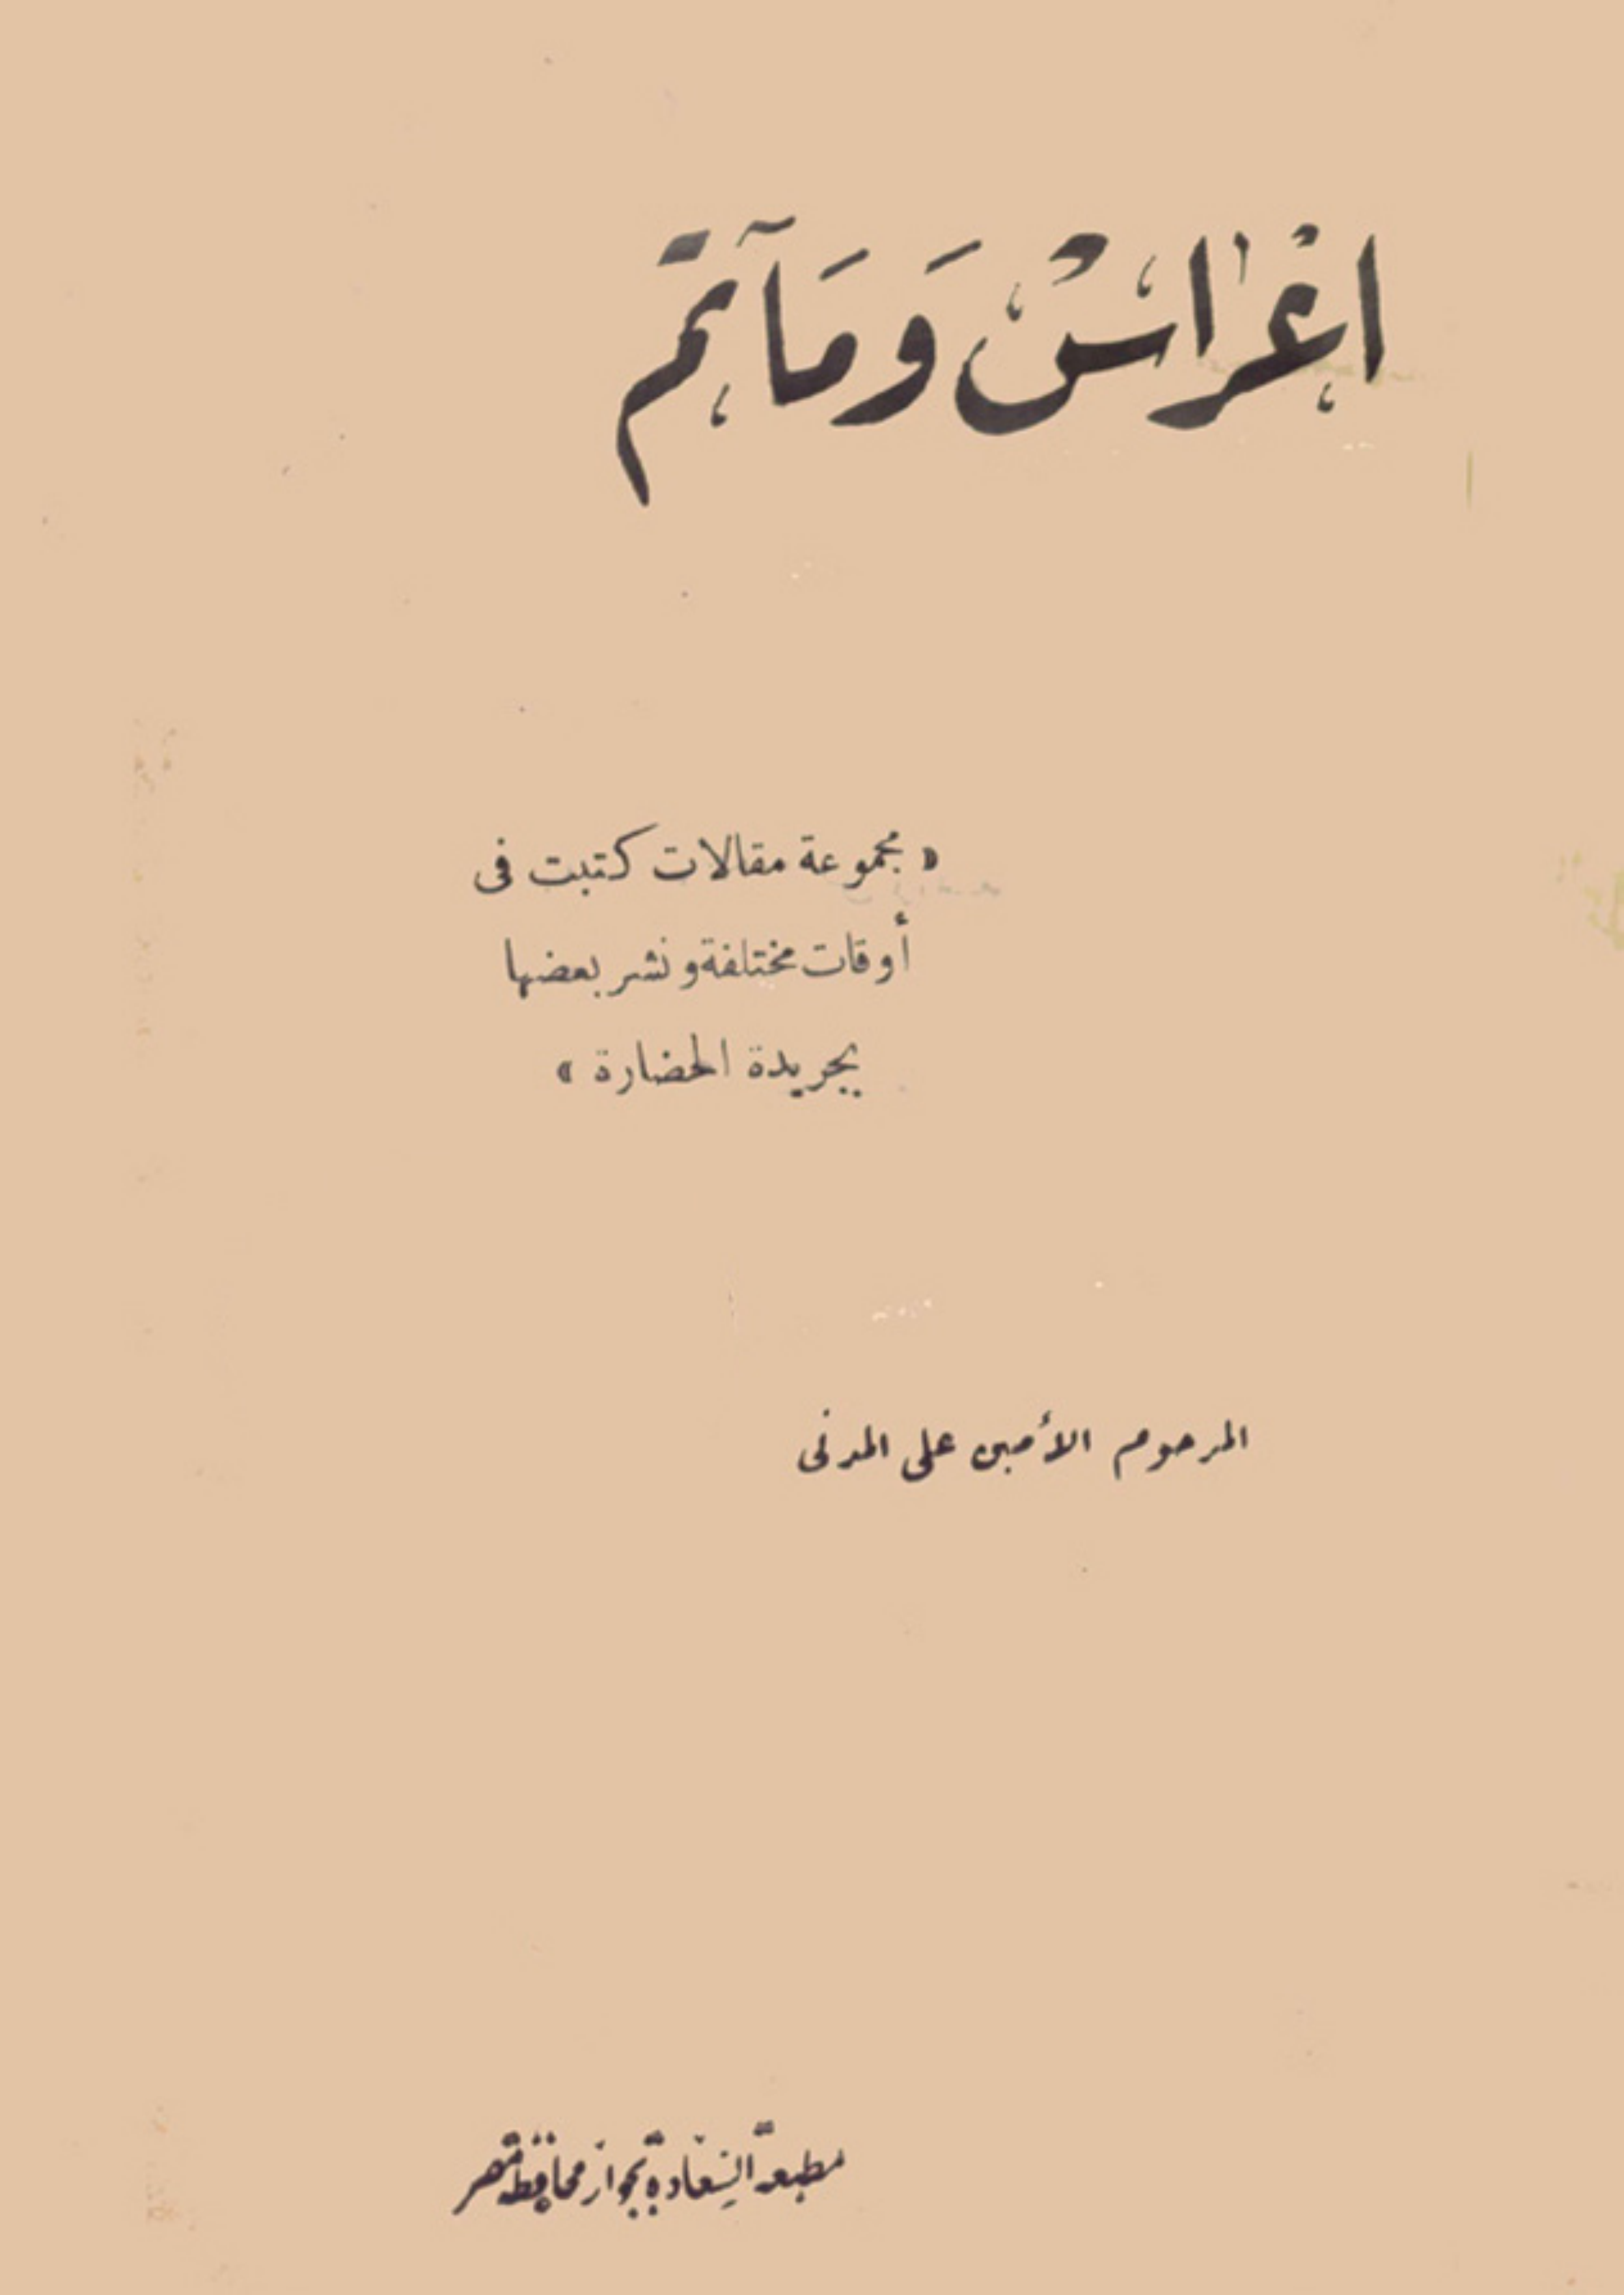 اعْرَاسٌ وَمَآتِم
« مجموعة مقالات كتبت فى
أوقات مختلفة ونشر بعضها
بجريدة الحضارة »
المرحوم الأمين على المدنى
مطبعة السعادة بجوار محافظة مصر